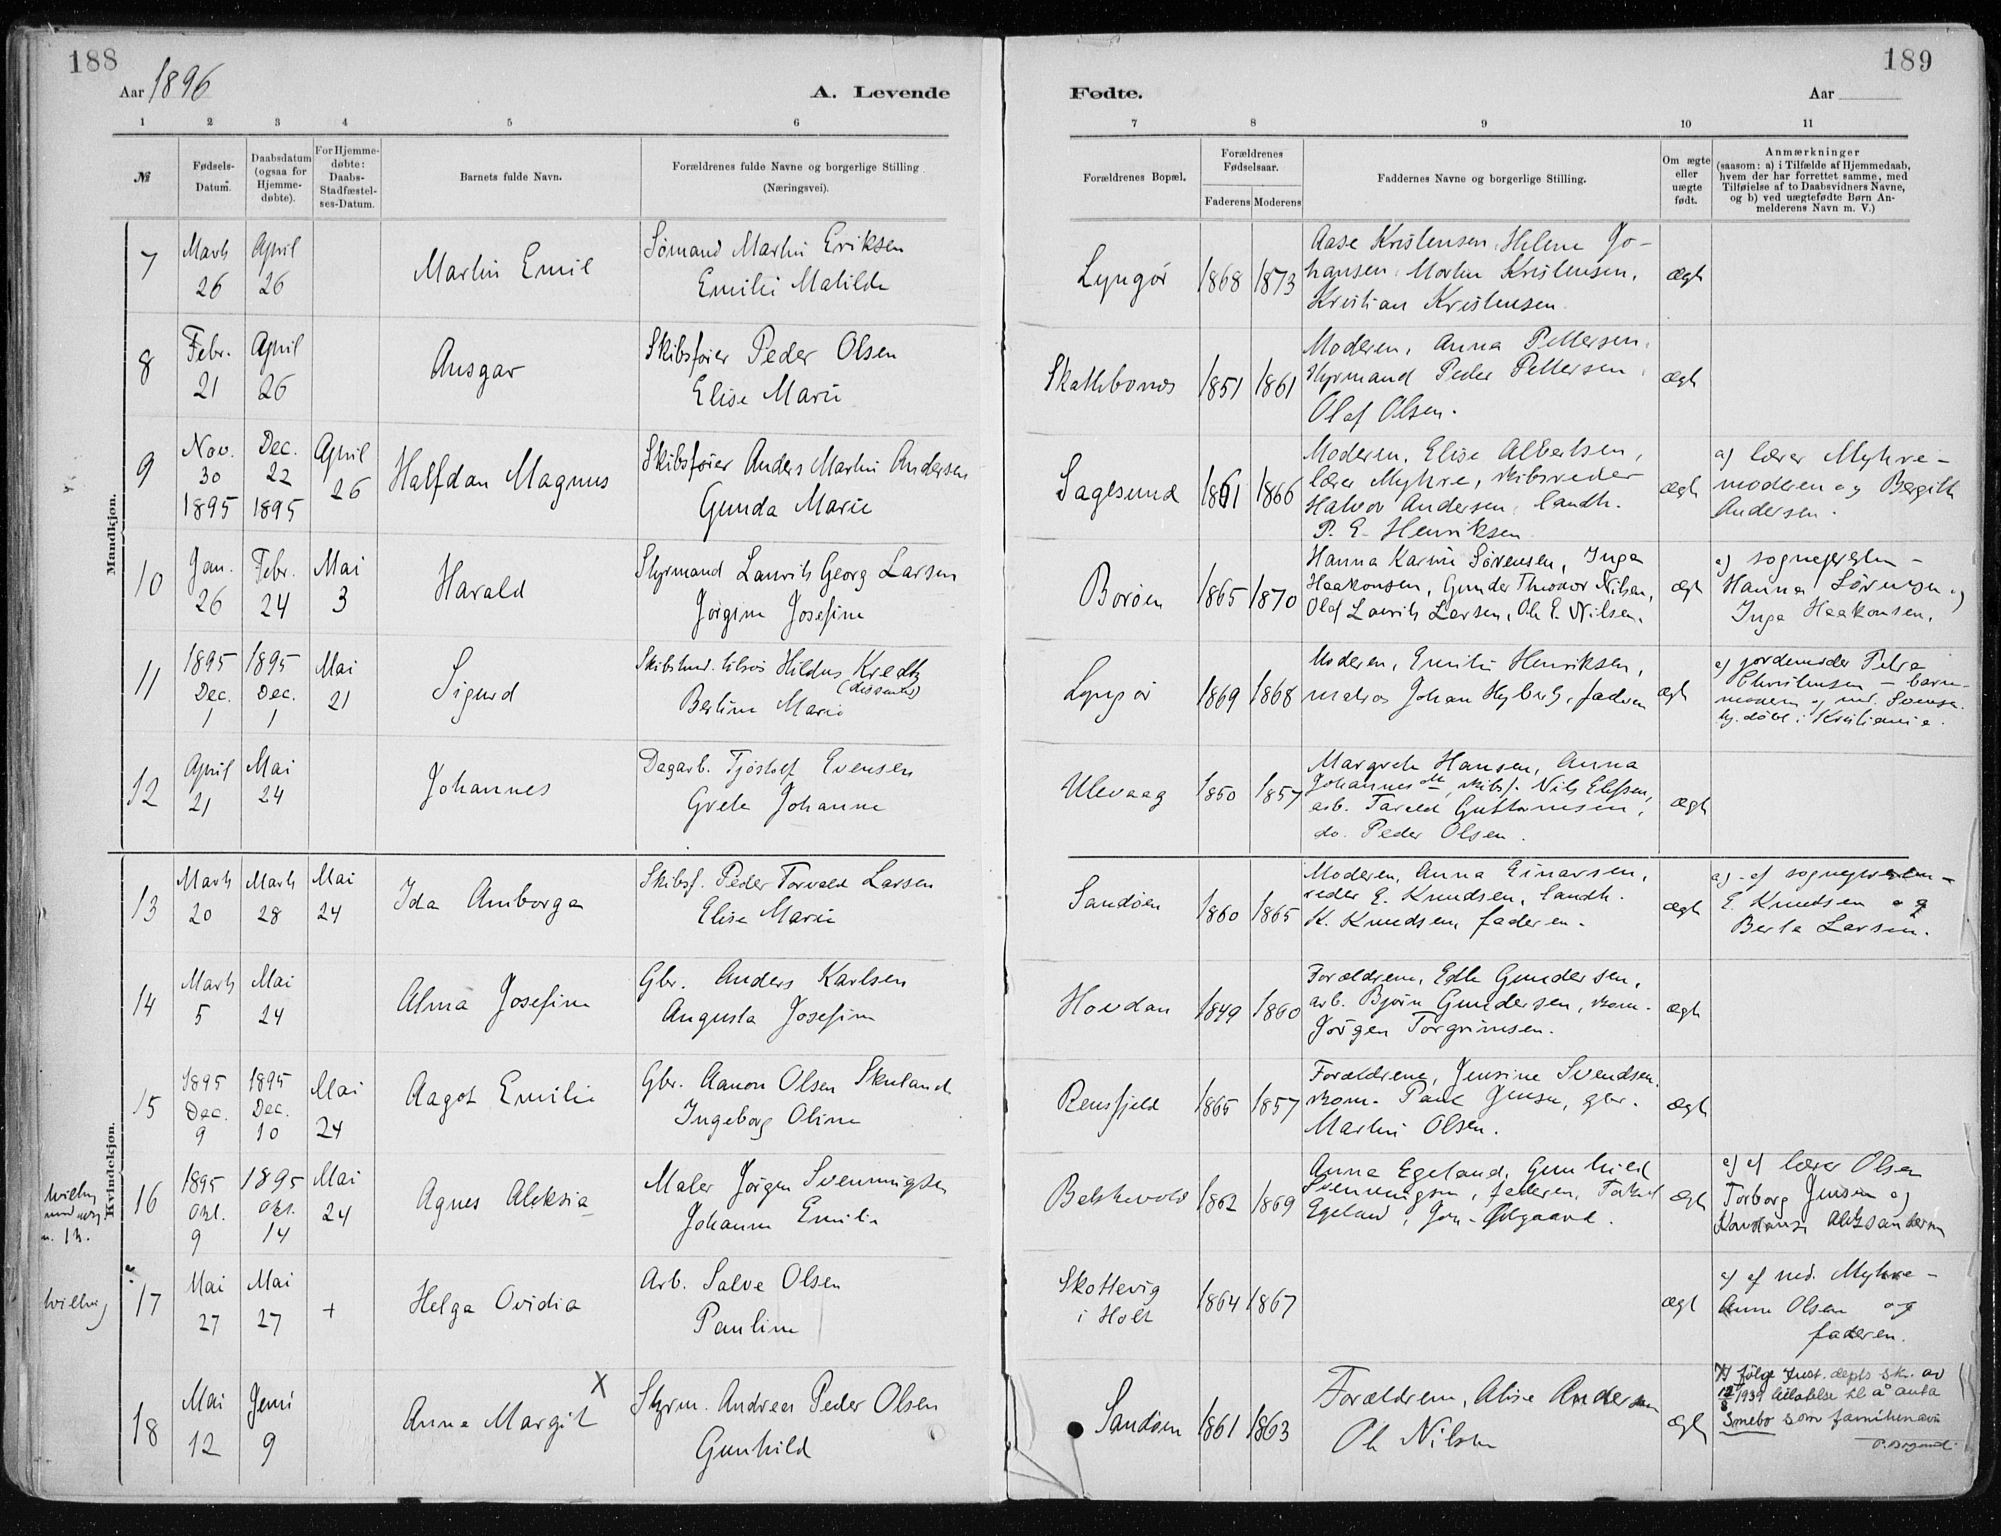 188
189
Aar 1896
A. Levende
Fødte.
Aar
1 2 3 4 5 6 7 8 9 10 11
№
Fødsels-
Datum.
Daabsdatum
(ogsaa for
Hjemme-
døbte).
For Hjemme-
døbte:
Daabs-
Stadfæstel-
ses-Datum.
Barnets fulde Navn.
Forældrenes fulde Navne og borgerlige Stilling
(Næringsvei).
Forældrenes Bopæl.
Forældrenes
Fødselsaar.
Faderens Moderens
Faddernes Navne og borgerlige Stilling.
Om ægte
eller
uægte
født.
Anmærkninger
(saasom: a) i Tilfælde af Hjemmedaab,
hvem der har forrettet samme, med
Tilføielse af to Daabsvidners Navne,
og b) ved uægtefødte Børn An-
melderens Navn m. V.)
Mandkjøn.
7
Marts
26
April
26
Martin Emil
Sømand Martin Eriksen
Emilie Matilde
Lyngør
1868 1873
Aase Kristensen, Helene Jo-
hansen, Martin Kristensen,
Kristian Kristensen.
ægte
8
Febr.
21
April
26
Ansgar
Skibsfører Peder Olsen
Elise Marie
1851 1861
Moderen, Anna Pettersen,
styrmand Peder Pettersen,
Olaf Olsen.
ægte
9
Nov.
30
1895
Dec.
22
1895
April
26
Halfdan Magnus
Skibsfører Anders Martin Andersen
Gunda Marie
Saglsund
1861 1866
Moderen, Elise Albertsen,
lærer Myhre, skibsreder
Halvor Andersen, landh.
P. E. Henriksen
ægte
a) lærer Myhre -
moderen og Bergitte
Andersen.
10
Jan.
26
Febr.
24
Mai
3
Harald
Styrmand Laurits Georg Larsen
Jørgine Josefine
Borøen
1865 1870
Hanna Karine Sørensen, Inga
Haakonsen, Gunder Theodor Nilsen,
Olaf Laurits Larsen, Ole E. Nilsen.
ægte
a) sognepresten -
Hanna Sørensen og
Inga Haakonsen.
11
1895
Dec.
1
1895
Dec.
1
Mai
21
Sigurd
Hildus
(dissenter)
Berline Marie
Lyngør
1869 1868
Moderen, Emilie Henriksen,
matros Johan Nyberg, faderen
ægte
a) jordemoder Petra
Christensen - barne-
moderen og
hj. døbt i Kristiania.
12
April
21
Mai
24
Johannes
Dagarb. Tjøstolf Evensen
Grete Johanne
Ulevaag
1850 1857
Margrete Hansen, Anna
Johannesdtr, skibsf. Nils Ellefsen,
arb. Tarald Guttormsen,
do. Peder Olsen.
ægte
Kvindekjøn.
13
Marts
20
Marts
28
Mai
24
Ida Amborga
Skibsf. Peder Torvald Larsen
Elise Marie
Sandøen
1860 1865
Moderen, Anna Einarsen,
reder E. Knudsen, landh.
K. Knudsen, faderen.
ægte
a) af sognepresten -
E. Knudsen og
Berta Larsen.
14
Marts
5
Mai
24
Alma Josefine
Gbr. Anders Karlsen
Augusta Josefine
Hovdan
1849 1860
Forældrene, Edle Gundersen,
arb. Bjørn Gundersen, skom.
Jørgen Torgrimsen.
ægte
15
1895
Dec.
9
1895
Dec.
10
Mai
24
Aagot Emilie
Gbr. Aanon Olsen Skuland
Ingeborg Oline
Rensfjeld
1865 1857
Forældrene, Jensine Svendsen,
skom. Paul Jensen, gbr.
Martin Olsen.
ægte
16
1895
Okt.
9
1895
Okt.
14
Mai
24
Agnes Aleksia
Maler Jørgen Svenningsen
Johanne Emilie
1862 1869
Anna Egeland, Gunhild
Svenningsen, faderen, Torkel
Egeland, Jon Ødgaard.
ægte
a) af lærer Olsen
Torborg Jensen og
Konstanse Aleksandersen
tvilling
17
Mai
27
Mai
27
+
Helga Ovidia
Arb. Salve Olsen
Pauline
Skottevig
i Holt
1864 1867
ægte
a) af ned. Myhre -
Anne Olsen og
faderen.
18
Mai
12
Juni
9
Anne Margit X
Styrm. Andreas Peder Olsen
Gunhild
Sandøen
1861 1863
Forældrene, Alise Andersen
Ole Nilsen
ægte
X) følge Just. depts skr. av
1939 tillatelse til å anta
Smebo som familienavn